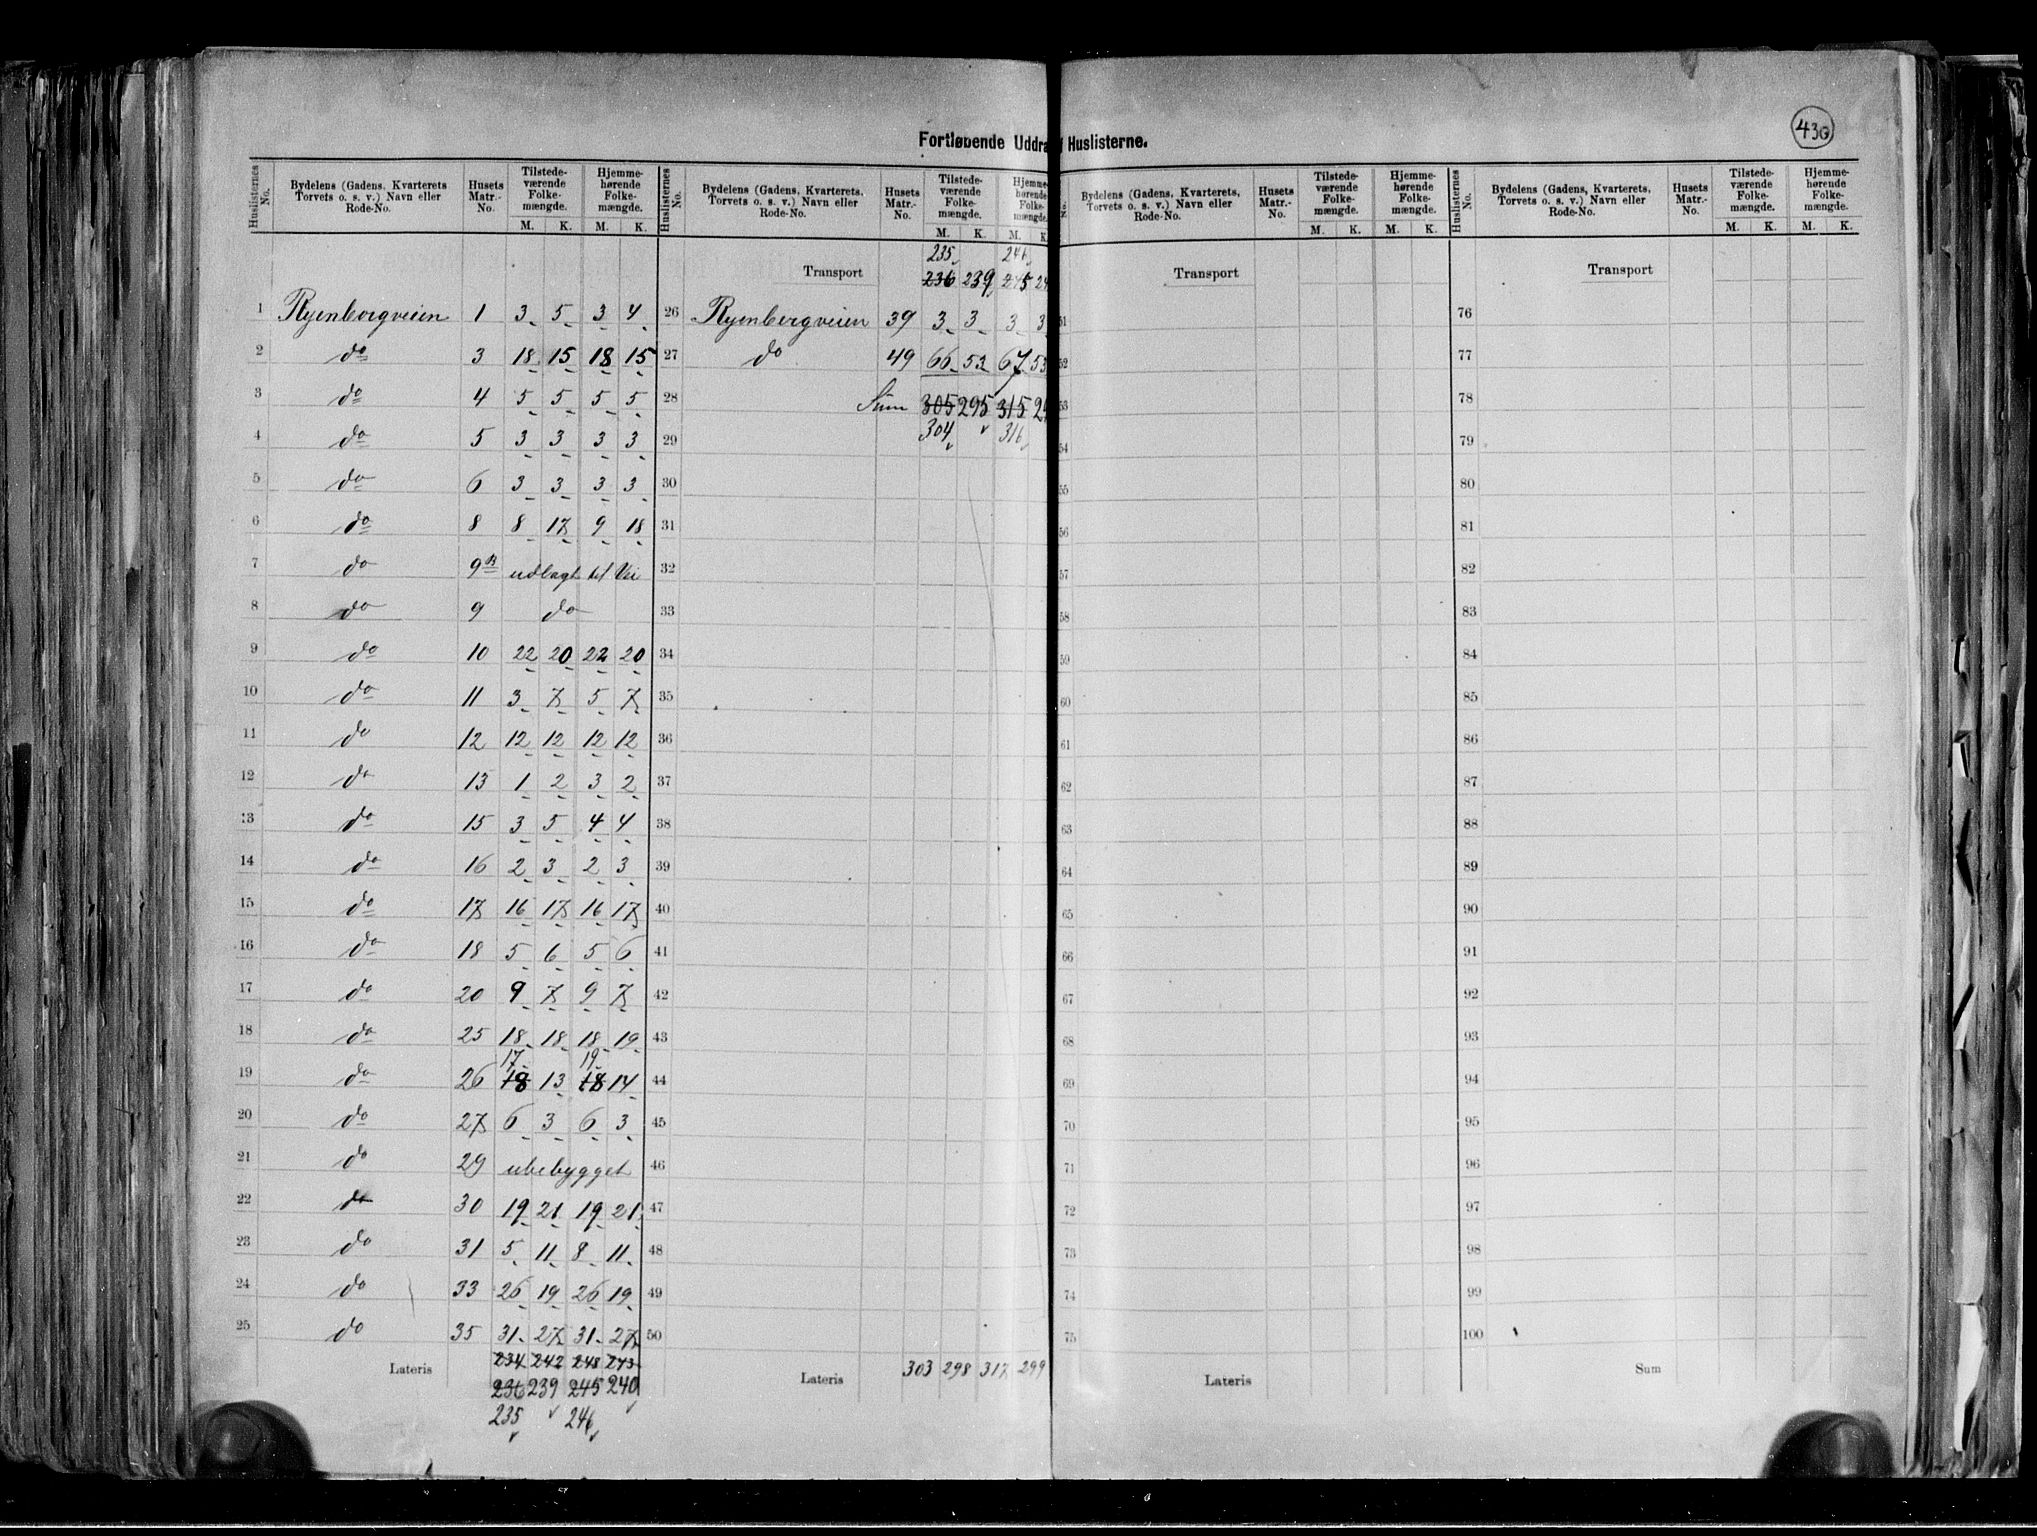 430
Fortløbende Uddra Huslisterne.
Huslisternes No. | Bydelens (Gadens, Kvarterets Torvets o. s. v.) Navn eller Rode-No. | Husets Matr.-No. | Tilstedeværende Folkemængde. M. K. | Hjemmehørende Folkemængde. M. K.
1 Ryenbergveien 1 3 5 3 4
2 do 3 18 15 18 15
3 do 4 5 5 5 5
4 do 5 3 3 3 3
5 do 6 3 3 3 3
6 do 8 8 17 9 18
7 do 9B udlagt til Vei
8 do 9 do
9 do 10 22 20 22 20
10 do 11 3 7 5 7
11 do 12 12 12 12 12
12 do 13 1 2 3 2
13 do 15 3 5 4 4
14 do 16 2 3 2 3
15 do 17 16 17 16 17
16 do 18 5 6 5 6
17 do 20 9 7 9 7
18 do 25 18 18 18 19
17 19
19 do 26 18 13 18 14
20 do 27 6 3 6 3
21 do 29 ubebygget
22 do 30 19 21 19 21
23 do 31 5 11 8 11
24 do 33 26 19 26 19
25 do 35 31 27 31 27
234 242 248 243
Lateris
236 239 245 240
235 246
Huslisternes No. | Bydelens (Gadens, Kvarterets, Torvets o. s. v.) Navn eller Rode-No. | Husets Matr.-No. | Tilstedeværende Folkemængde. M. K. | Hjemmehørende Folkemængde. M. K.
235 246
Transport 236 239 245 24
26 Ryenbergveien 39 3 3 3 3
27 do 49 66 53 67 53
28 Sum 305 295 315 29
29 304 316
30
31
32
33
34
35
36
37
38
39
40
41
42
43
44
45
46
47
48
49
50
Lateris 303 298 317 299
Bydelens (Gadens, Kvarterets, Torvets o. s. v.) Navn eller Rode-No. | Husets Matr.-No. | Tilstedeværende Folkemængde. M. K. | Hjemmehørende Folkemængde. M. K.
Transport
51
52
53
54
55
56
57
58
59
60
61
62
63
64
65
66
67
68
69
70
71
72
73
74
75
Lateris
Huslisternes No. | Bydelens (Gadens, Kvarterets, Torvets o. s. v.) Navn eller Rode-No. | Husets Matr.-No. | Tilstedeværende Folkemængde. M. K. | Hjemmehørende Folkemængde. M. K.
Transport
76
77
78
79
80
81
82
83
84
85
86
87
88
89
90
91
92
93
94
95
96
97
98
99
100
Sum